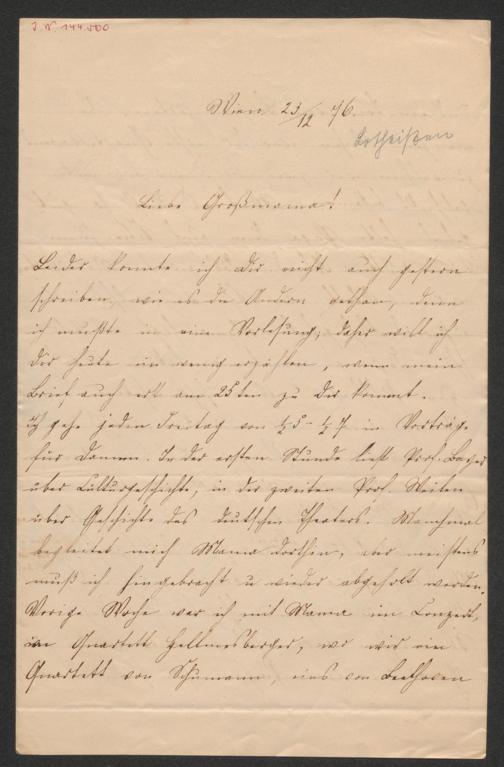 J. N 144.500
Wien 23/12 76.
Lotheißen
Liebe Großmama!
Leider konnte ich Dir nicht auch gestern
schreiben, wie es die Andern gethan, denn
ich mußte in eine Vorlesung; daher will ich
Dir heute ein wenig erzählen, wenn mein
Brief auch erst am 25ten zu Dir kommt.
Ich gehe jeden Freitag von ½5-½7 in Vorträge
für Damen. In der ersten Stunde ließt Prof.
über Culturgeschichte, in der zweiten Prof. Weilen
über Geschichte des deutschen Theaters. Manchmal
begleitet mich Mama dorthin, aber meistens
muß ich hingebracht u wieder abgeholt werden.
Vorige Woche war ich mit Mama im Conzert,
im Quartett Hellmesberger, wo wir ein
Quartett von Schumann, eines von Beethoven